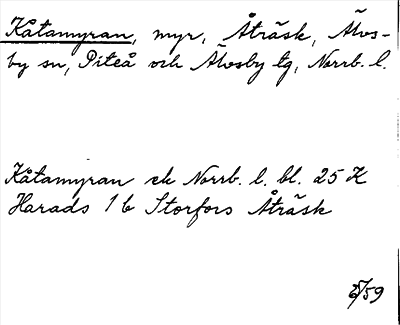 Kåtamyran, myr, Åträsk, Älvs-
by sn, Piteå och Älvsby tg, Norrb. l.
Kåtamyran ek Norrb. l. bl. 25 K
Harads 1 b Storfors Åträsk
/59